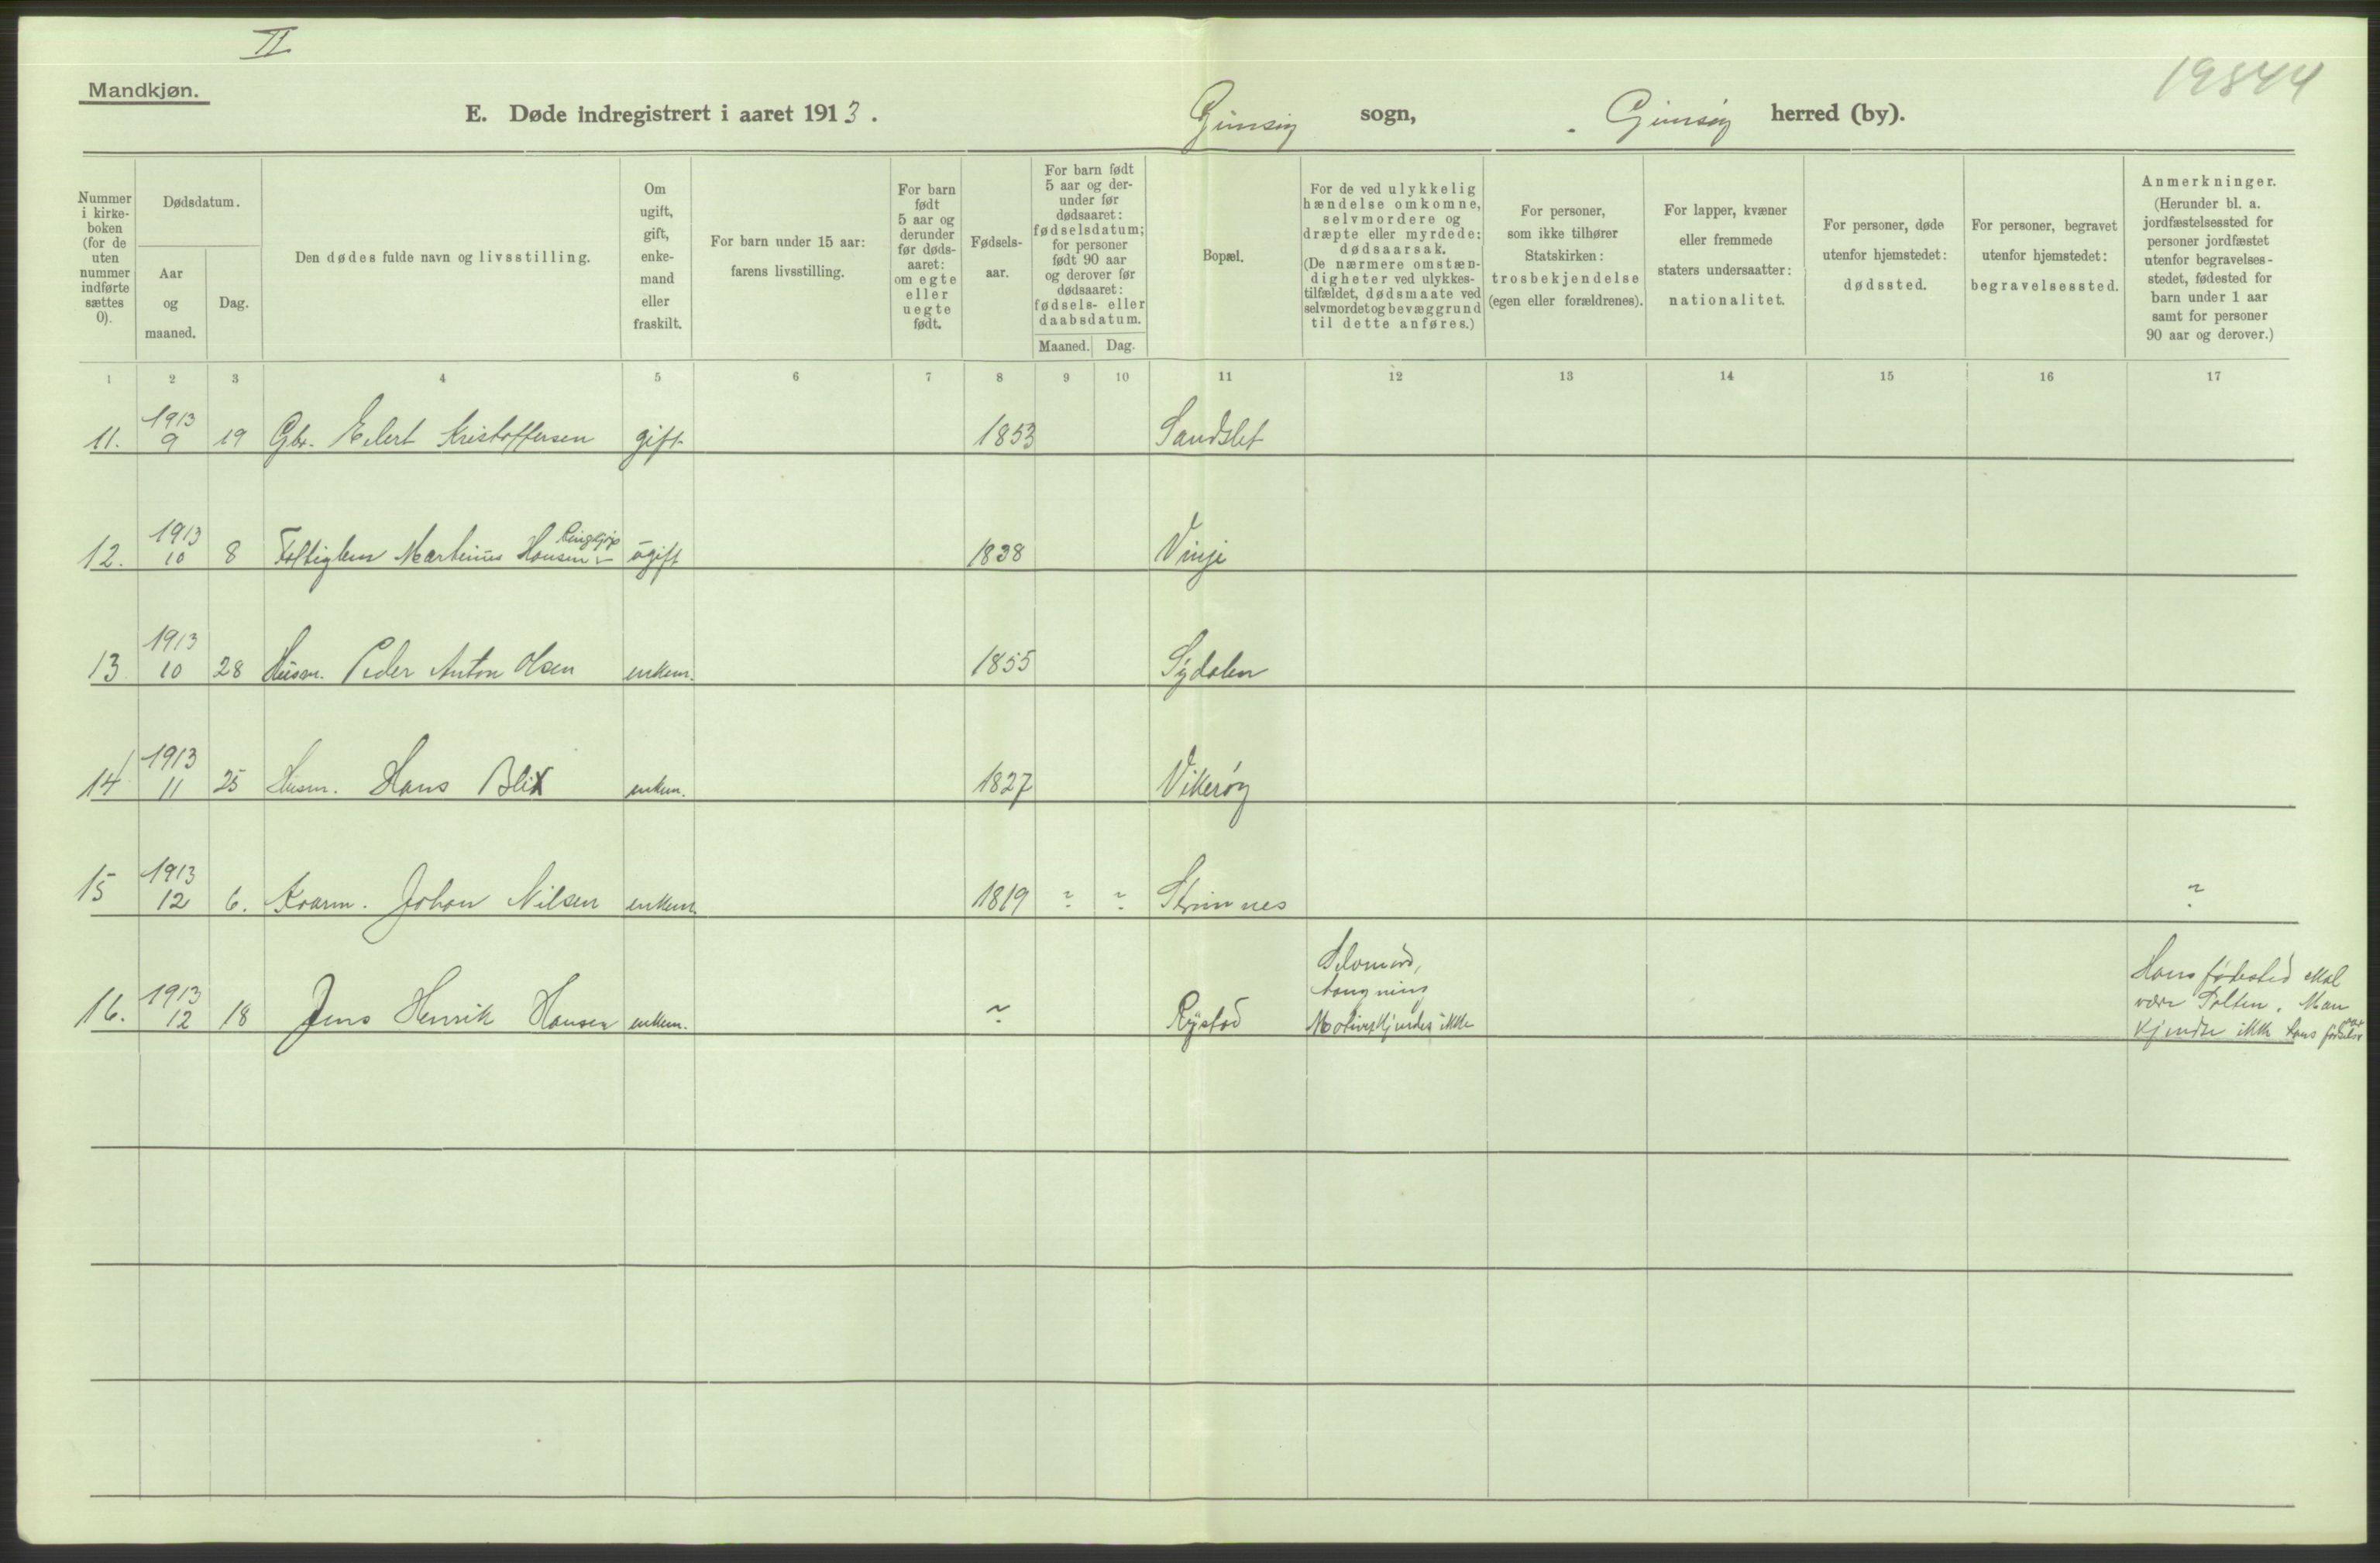 II
19844
Mandkjøn.
E. Døde indregistrert i aaret 1913. Gimsøy sogn, Gimsøy herred (by).
Nummer
i kirke-
boken
(for de
uten
nummer
indførte
sættes
0).
Dødsdatum.
Aar
og
maaned.
Dag.
Den dødes fulde navn og livsstilling.
Om
ugift,
gift,
enke-
mand
eller
fraskilt.
For barn under 15 aar:
farens livsstilling.
For barn
født
5 aar og
derunder
før døds-
aaret:
om egte
eller
uegte
født.
Fødsels-
aar.
For barn født
5 aar og der-
under før
dødsaaret:
fødselsdatum;
for personer
født 90 aar
og derover før
dødsaaret:
fødsels- eller
daabsdatum.
Maaned. Dag.
Bopæl.
For de ved ulykkelig
hændelse omkomne,
selvmordere og
dræpte eller myrdede:
dødsaarsak.
(De nærmere omstæn-
digheter ved ulykkes-
tilfældet, dødsmaate ved
selvmordet og bevæggrund
til dette anføres.)
For personer,
som ikke tilhører
Statskirken:
trosbekjendelse
(egen eller forældrenes).
For lapper, kvæner
eller fremmede
staters undersaatter:
nationalitet.
For personer, døde
utenfor hjemstedet:
dødssted.
For personer, begravet
utenfor hjemstedet:
begravelsessted.
Anmerkninger.
(Herunder bl. a.
jordfæstelsessted for
personer jordfæstet
utenfor begravelses-
stedet, fødested for
barn under 1 aar
samt for personer
90 aar og derover.)
1 2 3 4 5 6 7 8 9 10 11 12 13 14 15 16 17
11. 1913 9 19 Gbr. Eilert Kristoffersen gift 1853 Sandslet
12. 1913 10 8 Martinus Hansen ugift 1838 Vinje
13 1913 10 28 Husm. Peder Anton Olsen enkem. 1855 Sydalen
14 1913 11 25 Husm. Hans Blix enkem. 1827 Vikerøy
15 1913 12 6. Kaarm. Johan Nilsen enkem. 1819 ? ? Strømnes ?
16. 1913 12 18 Jens Henrik Hansen enkem. ? Rystad
Selvmord,
hængning
Motivet kjendes ikke
Hans fødested skal
være Salten. Man
kjender ikke hans fødselsaar